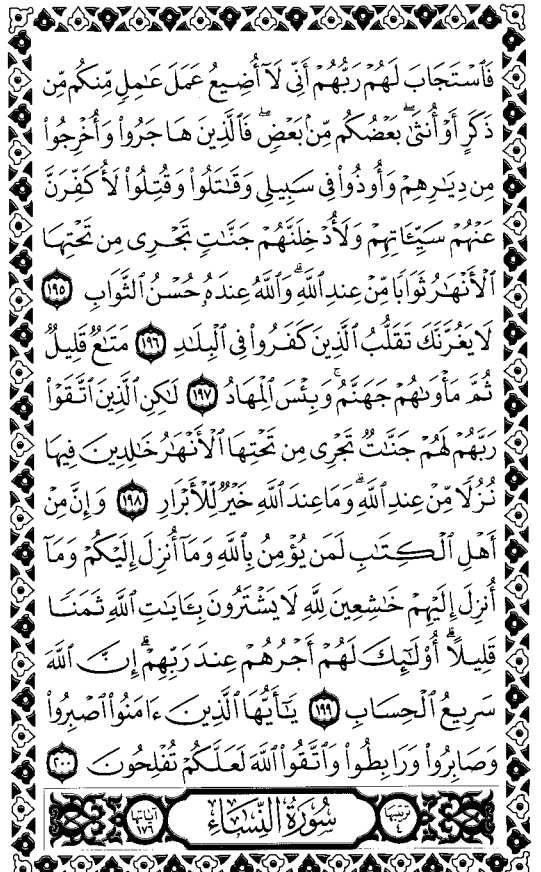 فَٱسْتَجَابَ لَهُمْ رَبُّهُمْ أَنِّى لَآ أُضِيعُ عَمَلَ عَٰمِلٍ مِّنكُم مِّن
ذَكَرٍ أَوْ أُنثَىٰ ۖ بَعْضُكُم مِّنۢ بَعْضٍ ۖ فَٱلَّذِينَ هَاجَرُوا۟ وَأُخْرِجُوا۟
مِن دِيَٰرِهِمْ وَأُوذُوا۟ فِى سَبِيلِى وَقَٰتَلُوا۟ وَقُتِلُوا۟ لَأُكَفِّرَنَّ
عَنْهُمْ سَيِّـَٔاتِهِمْ وَلَأُدْخِلَنَّهُمْ جَنَّٰتٍ تَجْرِى مِن تَحْتِهَا
ٱلْأَنْهَٰرُ ثَوَابًا مِّنْ عِندِ ٱللَّهِ ۗ وَٱللَّهُ عِندَهُۥ حُسْنُ ٱلثَّوَابِ ١٩٥
لَا يَغُرَّنَّكَ تَقَلُّبُ ٱلَّذِينَ كَفَرُوا۟ فِى ٱلْبِلَٰدِ ١٩٦ مَتَٰعٌ قَلِيلٌ
ثُمَّ مَأْوَىٰهُمْ جَهَنَّمُ ۚ وَبِئْسَ ٱلْمِهَادُ ١٩٧ لَٰكِنِ ٱلَّذِينَ ٱتَّقَوْا۟
رَبَّهُمْ لَهُمْ جَنَّٰتٌ تَجْرِى مِن تَحْتِهَا ٱلْأَنْهَٰرُ خَٰلِدِينَ فِيهَا
نُزُلًا مِّنْ عِندِ ٱللَّهِ ۗ وَمَا عِندَ ٱللَّهِ خَيْرٌ لِّلْأَبْرَارِ ١٩٨ وَإِنَّ مِنْ
أَهْلِ ٱلْكِتَٰبِ لَمَن يُؤْمِنُ بِٱللَّهِ وَمَآ أُنزِلَ إِلَيْكُمْ وَمَآ
أُنزِلَ إِلَيْهِمْ خَٰشِعِينَ لِلَّهِ لَا يَشْتَرُونَ بِـَٔايَٰتِ ٱللَّهِ ثَمَنًا
قَلِيلًا ۗ أُو۟لَٰٓئِكَ لَهُمْ أَجْرُهُمْ عِندَ رَبِّهِمْ ۗ إِنَّ ٱللَّهَ
سَرِيعُ ٱلْحِسَابِ ١٩٩ يَٰٓأَيُّهَا ٱلَّذِينَ ءَامَنُوا۟ ٱصْبِرُوا۟
وَصَابِرُوا۟ وَرَابِطُوا۟ وَٱتَّقُوا۟ ٱللَّهَ لَعَلَّكُمْ تُفْلِحُونَ ٢٠٠
ترتيبها ٤ سُورَةُ ٱلنِّسَاءِ آياتها ١٧٦